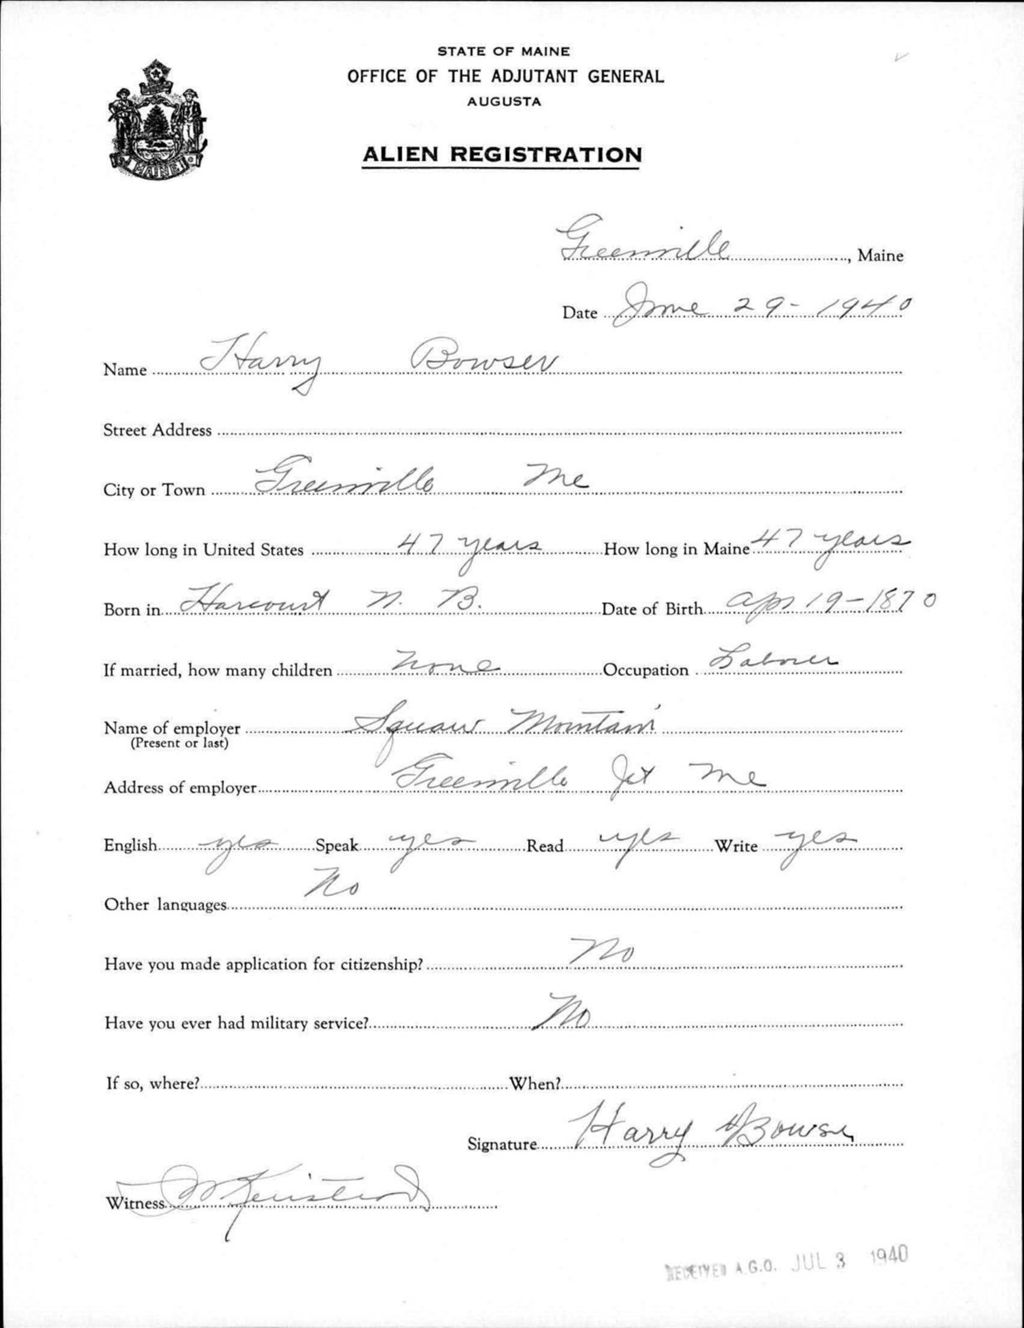 STATE OF MAINE
OFFICE OF THE ADJUTANT GENERAL
AUGUSTA
ALIEN REGISTRATION
MAINE
Greenville, Maine
Date June 29-1940
Name Harry Bowser
Street Address
City or Town Greenville Me
How long in United States 47 years How long in Maine 47 years
Born in Harcourt N. B. Date of Birth Apr 19-1870
If married, how many children None Occupation Laborer
Name of employer Squaw Mountain
(Present or last)
Address of employer Greenville Jct Me
English yes Speak yes Read yes Write yes
Other languages No
Have you made application for citizenship? No
Have you ever had military service? No
If so, where? When?
Signature Harry Bowser
Witness
RECEIVED A.G.O. JUL 3 1940